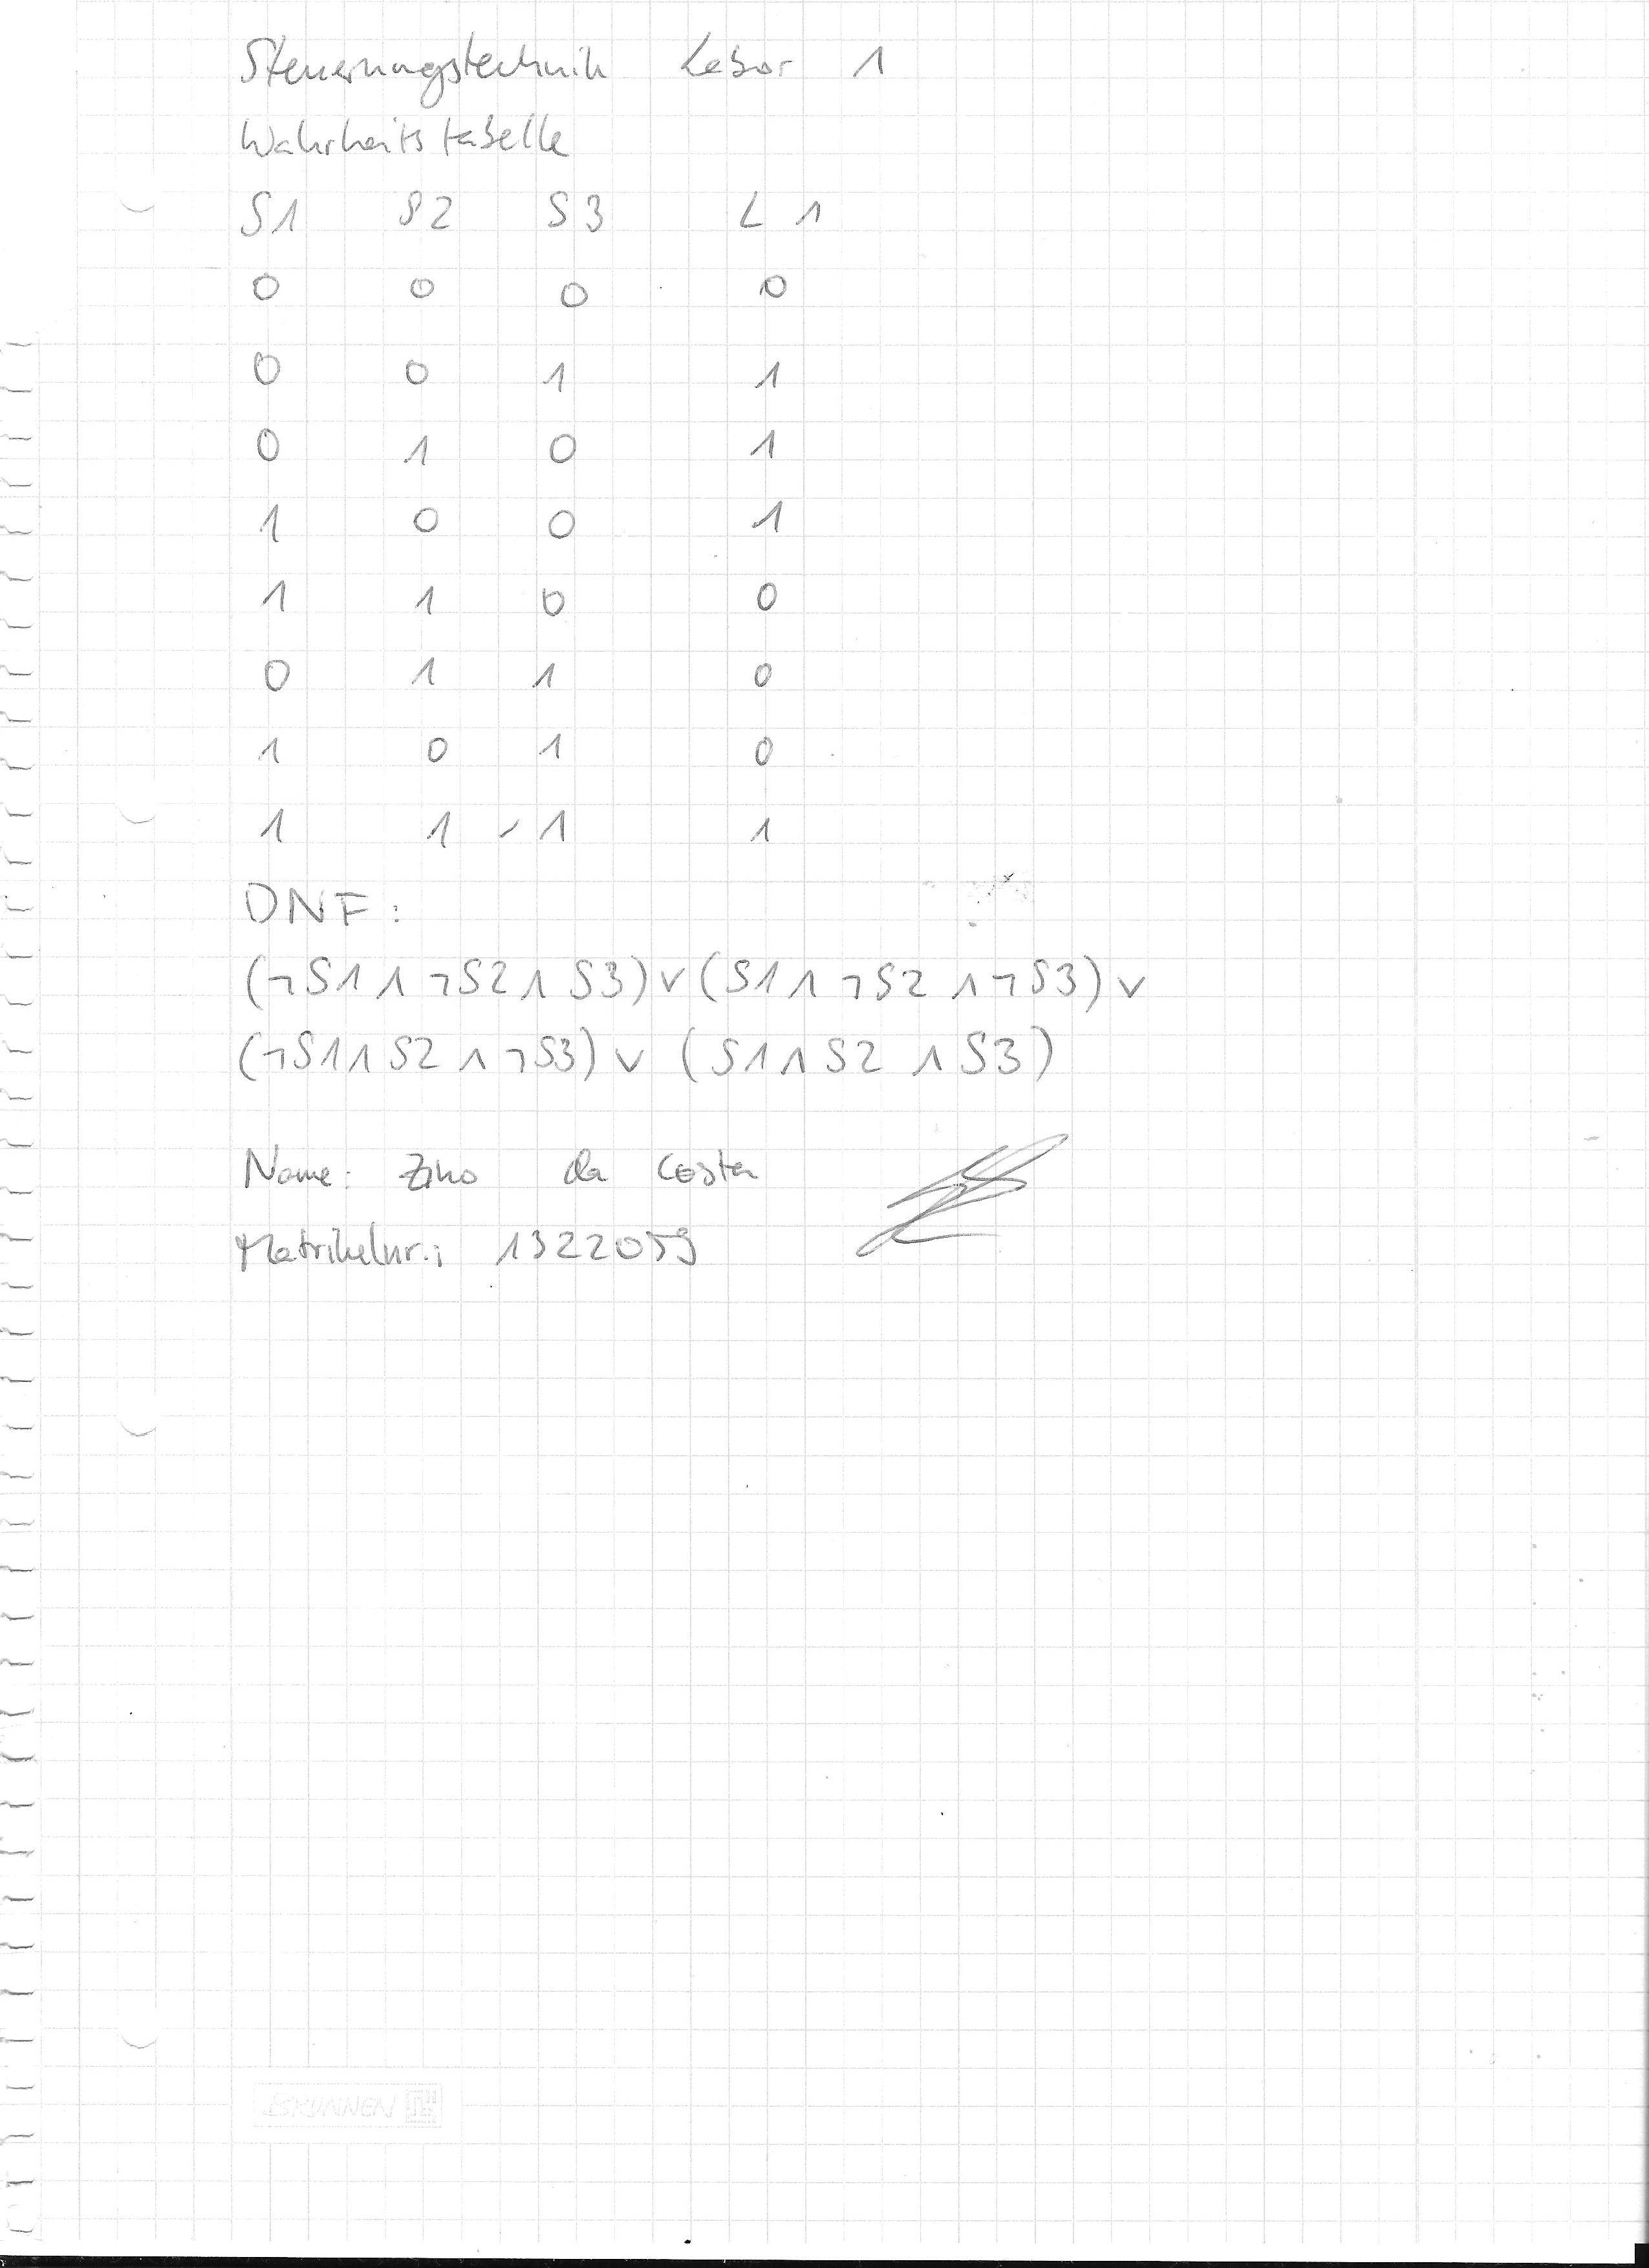 Steuerungstechnik Labor 1
Wahrheitstabelle
S1 S2 S3 L1
0 0 0 0
0 0 1 1
0 1 0 1
1 0 0 1
1 1 0 0
0 1 1 0
1 0 1 0
1 1 1 1
DNF:
(¬S1∧¬S2∧S3)∨(S1∧¬S2∧¬S3)∨
(¬S1∧S2∧¬S3)∨(S1∧S2∧S3)
Name: da Costa
Matrikelnr.: 1322059
BRUNNEN